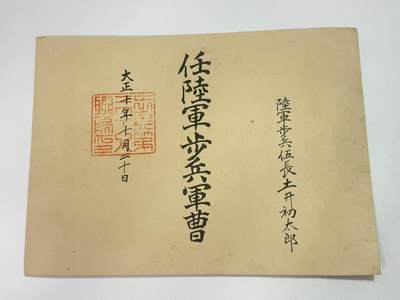 陸軍歩兵伍長土井初太郎
任陸軍歩兵軍曹
大正十年十月二十日